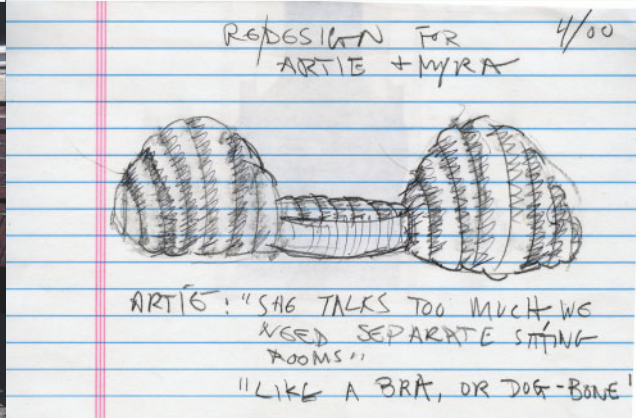 REDESIGN FOR 4/00
ARTIE + MYRA
ARTIE: "SHE TALKS TOO MUCH WE
NEED SEPARATE SITTING
ROOMS"
"LIKE A BRA, OR DOG-BONE"